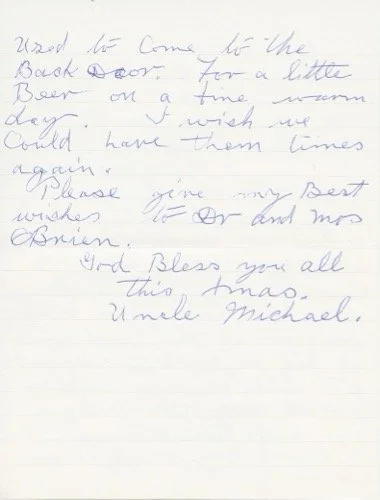 Used to Come to the
Back Door. For a little
Beer on a fine warm
day. I wish we
Could have them times
again.
Please give my Best
wishes to Dr and Mrs
OBrien.
God Bless you all
this Xmas.
Uncle Michael.